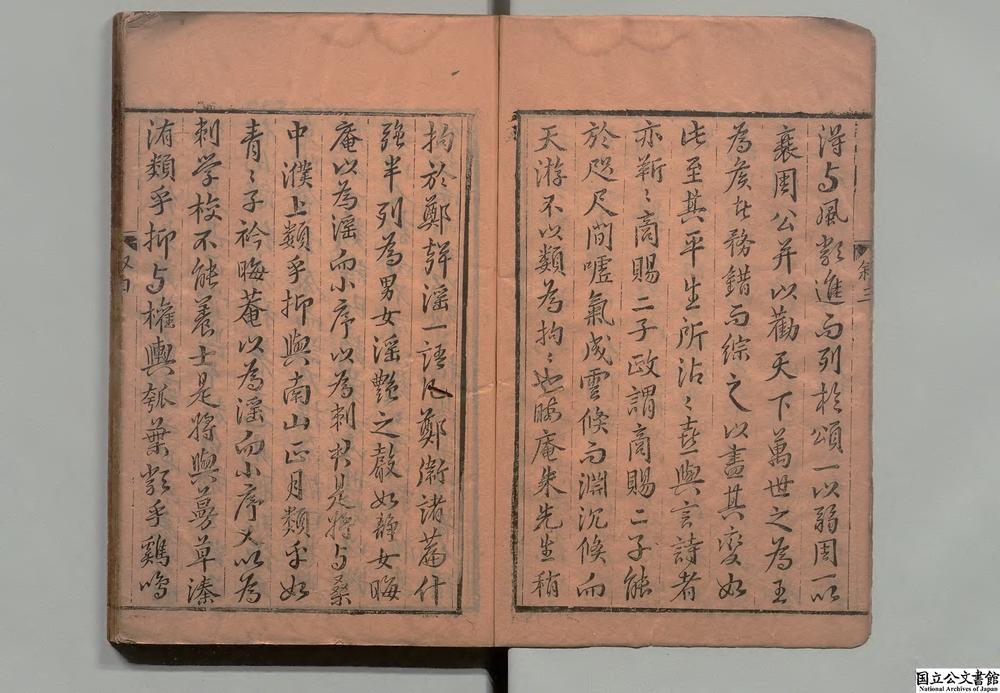 得与風類進而列於頌一以弱周一以
襄周公并以勸天下萬世之為王
為侯者務錯而綜之以盡其変如
此至其平生所沾〻喜與言詩者
亦斬〻商賜二子政謂商賜二子能
於咫尺間噓氣成雲倏而淵沉倏而
天游不以類為拘〻也晦庵朱先生稍
拘於鄭聲淫一語凡鄭衛諸篇什
強半列為男女淫艷之聲如靜女晦
庵以為淫而小序以為刺時是将与桑
中濮上類乎抑與南山正月類乎如
青〻子衿晦菴以為淫而小序又以為
刺学校不能養士是将與蔓草溱
洧類乎抑与權輿瓠葉類乎雞鳴
叙三
国立公文書館
National Archives of Japan